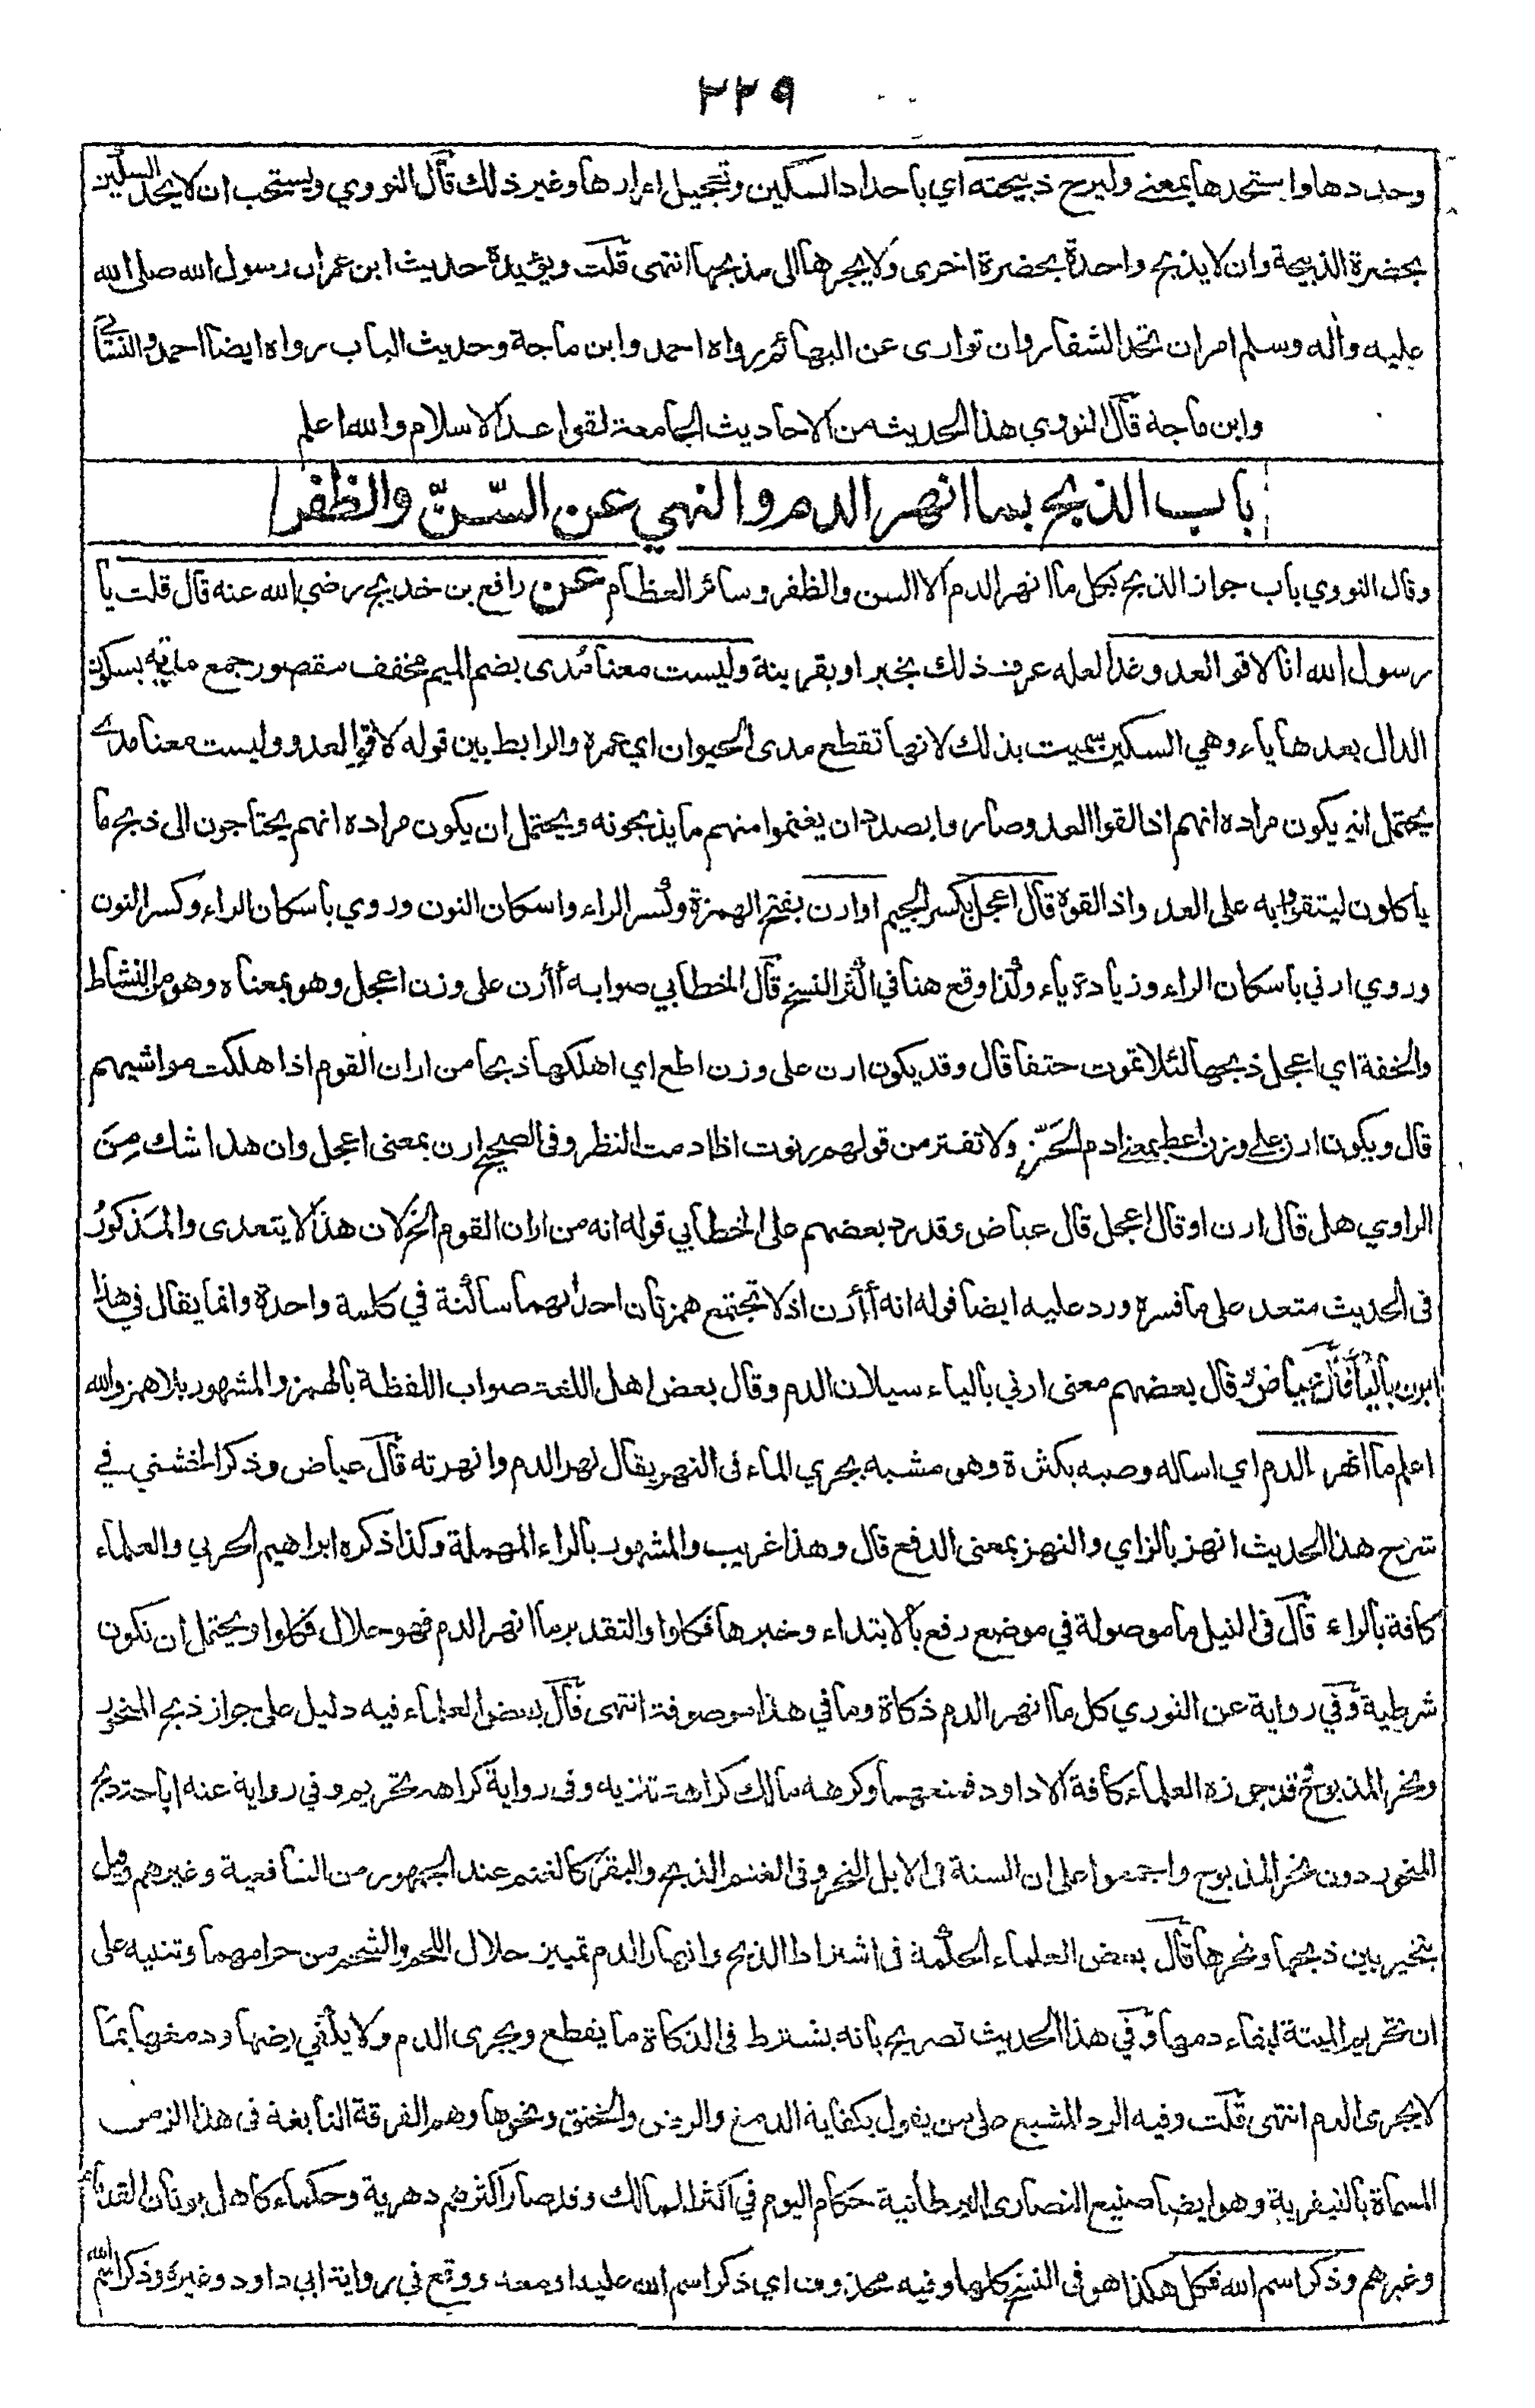 ٢٢٩
وحددها واستحدها بمعنے وليرح ذبيحته اي باحداد السكين وتعجيل امرارها وغير ذلك قال النووي ويستحب ان لا يحد السكين
بحضرة الذبيحة وان لا يذبح واحدة بحضرة اخرى ولا يجرها الى مذبحها انتهى قلت ويؤيدة حديث ابن عمر ان رسول الله صلى الله
عليه وأله وسلم امر ان تحد الشفار وان توارى عن البهائم رواه احمد وابن ماجة وحديث الباب رواه ايضا احمد والنسائي
وابن ماجة قال النووي هذا الحديث من الاحاديث الجامعة لقواعد الاسلام والله اعلم
باب الذبح بما انهر الدم والنهي عن السّنّ والظفر
وقال النووي باب جواز الذبح بكل ما انهر الدم الا السن والظفر وسائر العظام عن رافع بن خديج رضي الله عنه قال قلت يا
رسول الله انا لاقو العدو غدا لعله عرف ذلك بخبر او بقرينة وليست معنا مُدى بضم الميم مخفف مقصور جمع مدية بسكون
الدال بعدها ياء وهي السكين سميت بذلك لانها تقطع مدى الحيوان اي عمرة والرابط بين قوله لاقو العدو وليست معنا مدے
يحتمل ان يكون مراده انهم اذا لقوا العدو وصاروا بصدد ان يغنموا منهم ما يذبحونه ويحتمل ان يكون مراده انهم يحتاجون الى ذبح ما
ياكلون ليتقووا به على العدو اذا لقوة قال اعجل بكسر الجيم او ارن بفتح الهمزة وكسر الراء واسكان النون وروي باسكان الراء وكسر النون
وروي ارني باسكان الراء وزيادة ياء وكذا وقع هنا في اكثر النسخ قال الخطابي صوابه أأرن على وزن اعجل وهو بمعناه وهو من النشاط
والخفة اي اعجل ذبحها لئلا تموت حتفا قال وقد يكون ارن على وزن اطع اي اهلكها ذبحا من اران القوم اذا هلكت مواشيهم
قال ويكون ارن على وزن اعط بمعنے ادم الحَزّ ولا تفتر من قولهم رنوت اذا ادمت النظر وفى الصحيح ارن بمعنى اعجل وان هذا شك مِنَ
الراوي هل قال ارن او قال اعجل قال عياض وقد رد بعضهم على الخطابي قوله انه من اران القوم الخ لان هذا لا يتعدى والمَذكورُ
فى الحديث متعد على ما فسره ورد عليه ايضا قوله انه أأرن اذ لا تجتمع همزتان احداهما ساكنة في كلمة واحدة وانما يقال في هذا
ايرن بالياء قال عياض وقال بعضهم معنى ارني بالياء سيلان الدم وقال بعض اهل اللغة صواب اللفظة بالهمز والمشهور بلا همز والله
اعلم ما انهر الدم اي اساله وصبه بكثرة وهو مشبه بجري الماء فى النهر يقال نهر الدم وانهرته قال عياض وذكر الخشني في
شرح هذا الحديث انهز بالزاي والنهز بمعنى الدفع قال وهذا غريب والمشهور بالراء المهملة وكذا ذكره ابراهيم الحربي والعلماء
كافة بالراء قال فى النيل ما موصولة في موضع رفع بالابتداء وخبرها فكلوا والتقدير ما انهر الدم فهو حلال فكلوا ويحتمل ان تكون
شرطية وفي رواية عن الثوري كل ما انهر الدم ذكاة وما في هذا موصوفة انتهى قال بعض العلماء فيه دليل على جواز ذبح المنحور
ونحر المذبوح قد جوزه العلماء كافة الا داود فمنعهما وكرهه مالك كراهة تنزيه وفى رواية كراهة تحريم وفي رواية عنه اباحة ذبح
المنحور دون نحر المذبوح واجمعوا على ان السنة فى الابل النحر وفى الغنم الذبح والبقر كالغنم عند الجمهور من الشافعية وغيرهم وقيل
يتخير بين ذبحها ونحرها قال بعض العلماء الحكمة فى اشتراط الذبح وانهار الدم تمييز حلال اللحم والشحم من حرامهما وتنبيه على
ان تحريم الميتة لبقاء دمها وفي هذا الحديث تصريح بانه يشترط فى الذكاة ما يقطع ويجرى الدم ولا يكفي رضها ودمغها بما
لا يجرى الدم انتهى قلت وفيه الرد المشبع على من يقول بكفاية الدمغ والرض والخنق ونحوها وهم الفرقة النابغة فى هذا الزمن
المسماة بالنيفرية وهو ايضا صنيع النصارى البرطانية حكام اليوم في اكثر الممالك وقد صار اكثرهم دهرية وحكماء كاهل يونان القدماء
وغيرهم وذكر اسم الله فكل هكذا هو فى النسخ كلها وفيه محذوف اي ذكر اسم الله عليه او معه ووقع في رواية ابي داود وغيره وذكر اسم الله